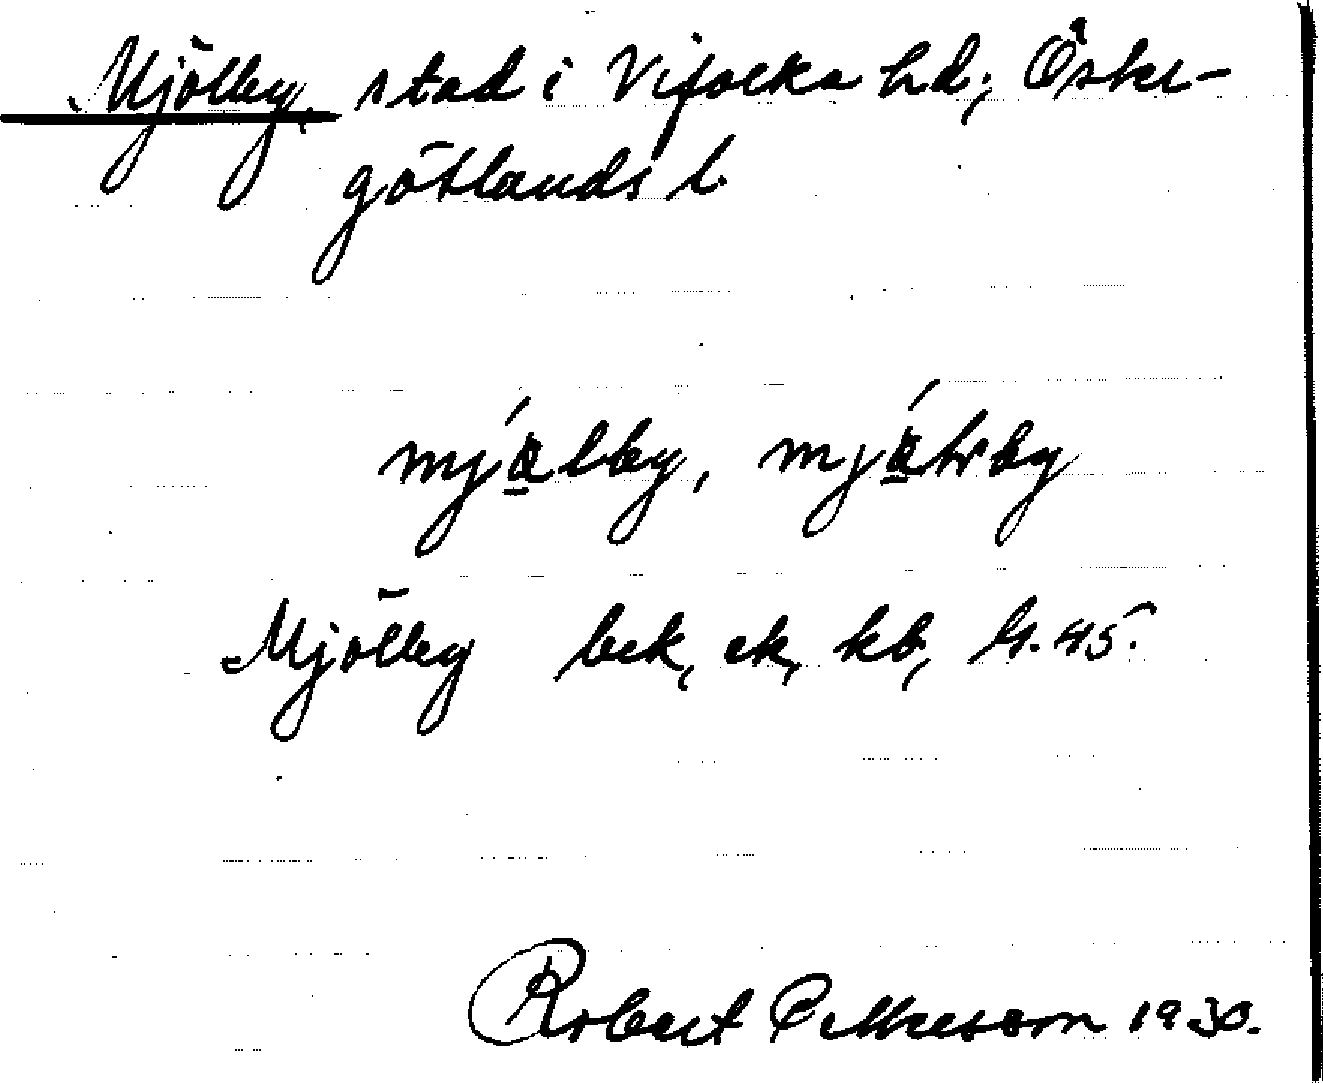 Mjölby, stad i Vifolka hd, Öster-
götlands l.
Mjölby bek, ek, kb, G. 45.
Robert Pettersson 1930.